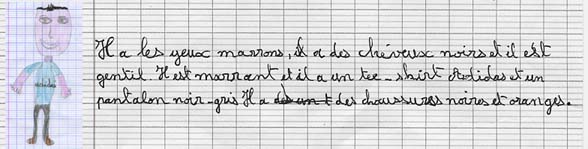 Il a les yeux marrons, il a des chéveux noirs et il est
gentil. Il est marrant et il a un tee-shirt Adidas et un
pantalon noir-gris Il a des chaussures noires et oranges.